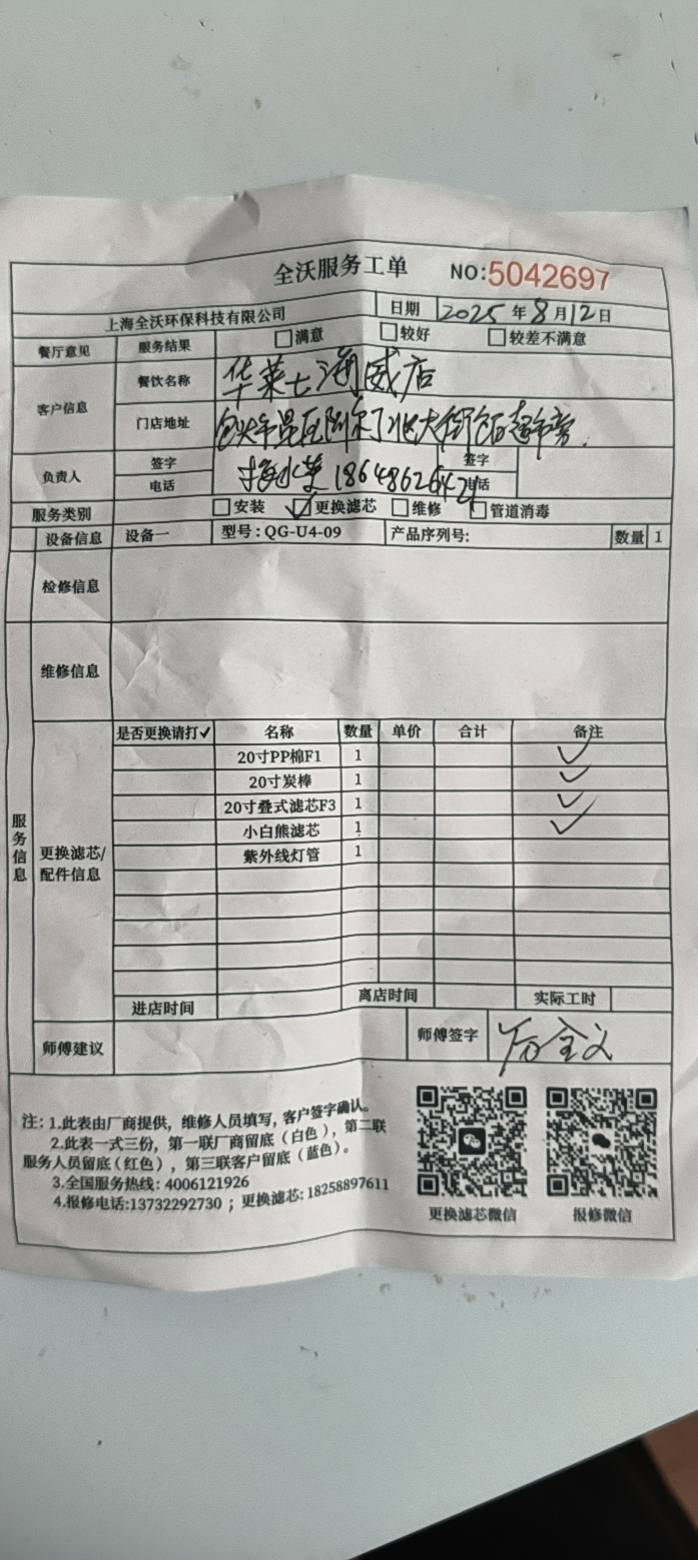 全沃服务工单 NO:5042697
上海全沃环保科技有限公司 日期 2025年8月12日
餐厅意见 服务结果 满意 较好 较差不满意
客户信息 餐饮名称 华莱士海威店
门店地址 包头市昆区阿尔丁北大街 超市旁.
负责人 签字 签字
电话 18648626421 电话
服务类别 安装 更换滤芯 维修 管道消毒
设备信息 设备一 型号:QG-U4-09 产品序列号: 数量 1
检修信息
维修信息
服务信息
更换滤芯/配件信息
是否更换请打✓ 名称 数量 单价 合计 备注
20寸PP棉F1 1 ✓
20寸炭棒 1 ✓
20寸叠式滤芯F3 1 ✓
小白熊滤芯 1 ✓
紫外线灯管 1
进店时间 离店时间 实际工时
师傅建议 师傅签字
注:1.此表由厂商提供，维修人员填写，客户签字确认。
2.此表一式三份，第一联厂商留底（白色），第二联
服务人员留底（红色），第三联客户留底（蓝色）。
3.全国服务热线: 4006121926
4.报修电话:13732292730 ；更换滤芯: 18258897611
更换滤芯微信 报修微信